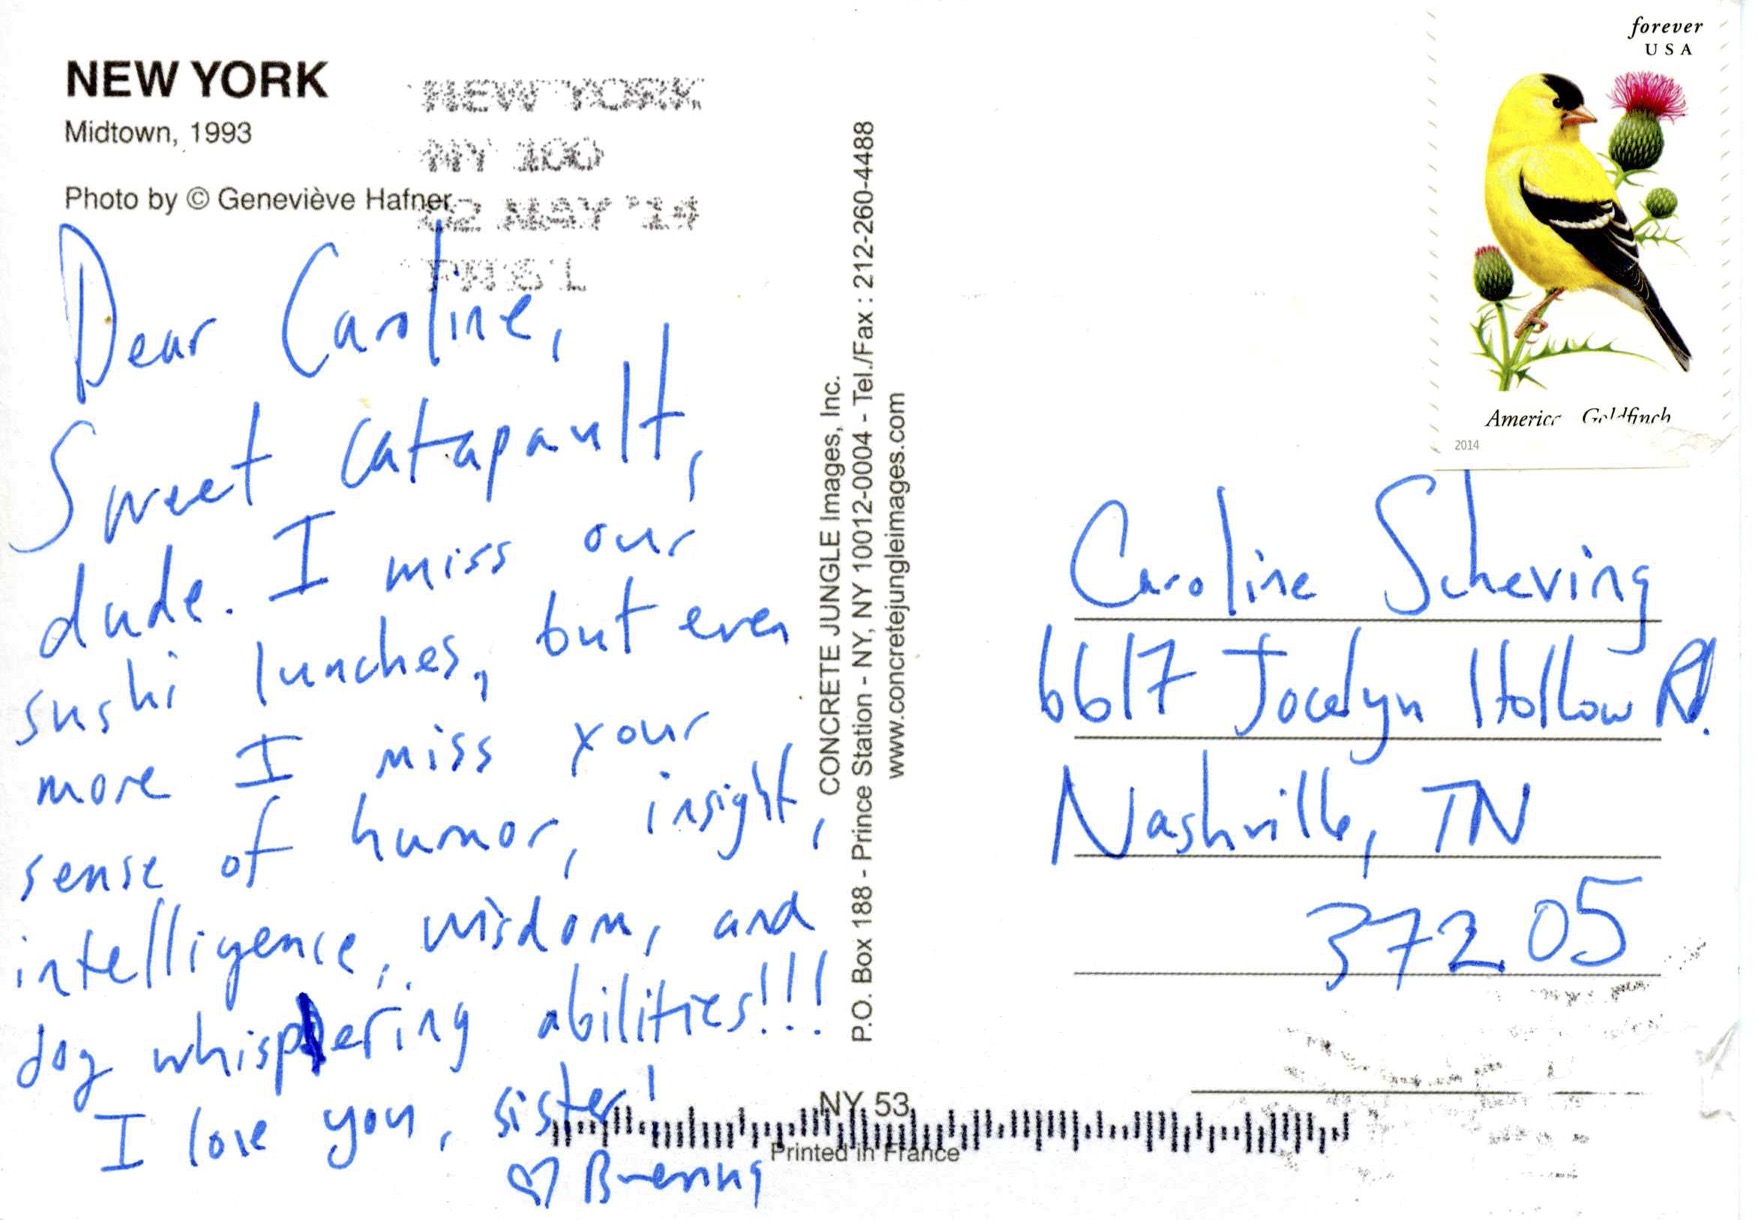 NEW YORK
Midtown, 1993
Photo by © Geneviève Hafner
NEW YORK
NY 100
02 MAY '14
Dear Caroline,
Sweet catapault,
dude. I miss our
sushi lunches, but even
more I miss your
sense of humor, insight,
intelligence, wisdom, and
dog whispering abilities!!!
I love you, sister!
♡
CONCRETE JUNGLE Images, Inc.
P.O. Box 188 - Prince Station - NY, NY 10012-0004 - Tel./Fax : 212-260-4488
www.concretejungleimages.com
NY 53
Printed in France
forever
USA
American Goldfinch
2014
Caroline Scheving
6617 Jocelyn Hollow Rd.
Nashville, TN
37205